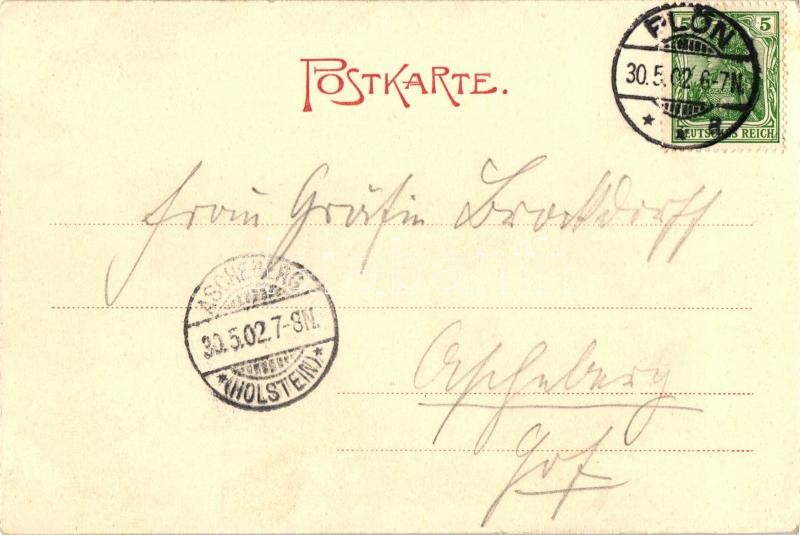 5 5
PLÖN
30.5.02.6-7N.
* * a
DEUTSCHES REICH
POSTKARTE.
Frau Gräfin Brockdorff
ASCHEBERG
30.5.02.7-8N.
*(HOLSTEIN)*
Ascheberg
Hof